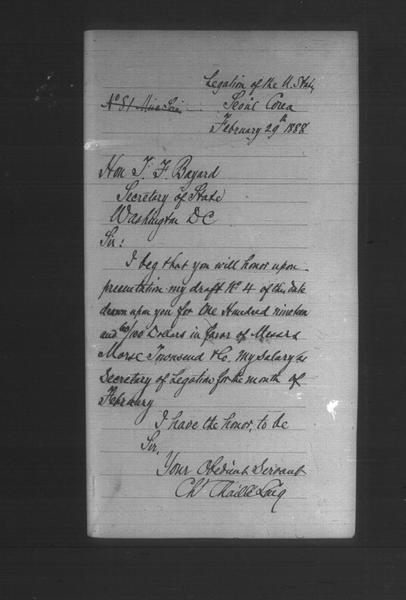 Legation of the U. States
Nº 51 Misc Series Seoul Corea
February 29th 1888
Hon T. F. Bayard
Secretary of State
Washington DC
Sir:
I beg that you will honor upon
presentation my draft Nº 4 of this date
drawn upon you for One Hundred nineteen
and 60/100 Dollars in favor of Messrs
Morse Townsend & Co. My salary as
Secretary of Legation for the month of
February
I have the honor, to be
Sir,
Your Obedient Servant
Ch Chaillé Long